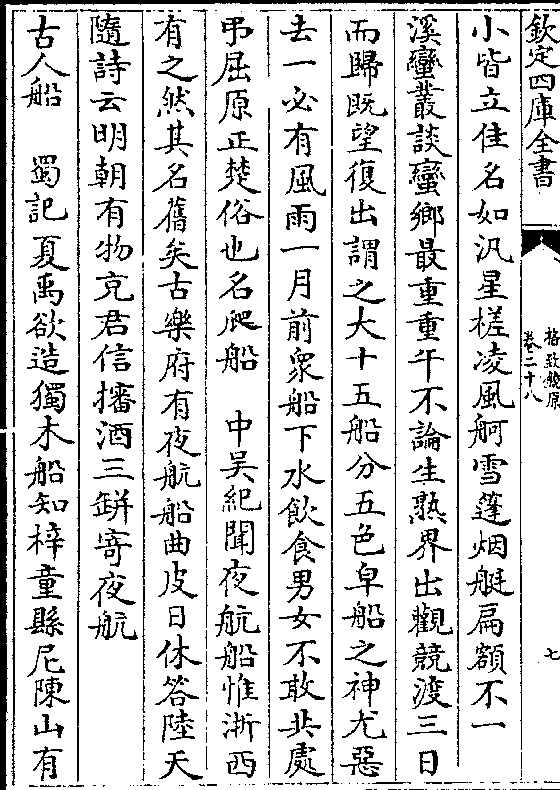 欽定四庫全書
格致鏡原
卷二十八
七
小皆立佳名如汎星槎凌風舸雪篷烟艇扁額不一
溪蠻叢談蠻鄉最重重午不論生熟界出觀競渡三日
而歸既望復出謂之大十五船分五色皁船之神尤惡
去一必有風雨一月前衆船下水飲食男女不敢共處
弔屈原正楚俗也名爬船　中吴紀聞夜航船惟浙西
有之然其名舊矣古樂府有夜航船曲皮日休答陸天
隨詩云明朝有物充君信㩯酒三缾寄夜航
古人船　蜀記夏禹欲造獨木船知梓童縣尼陳山有